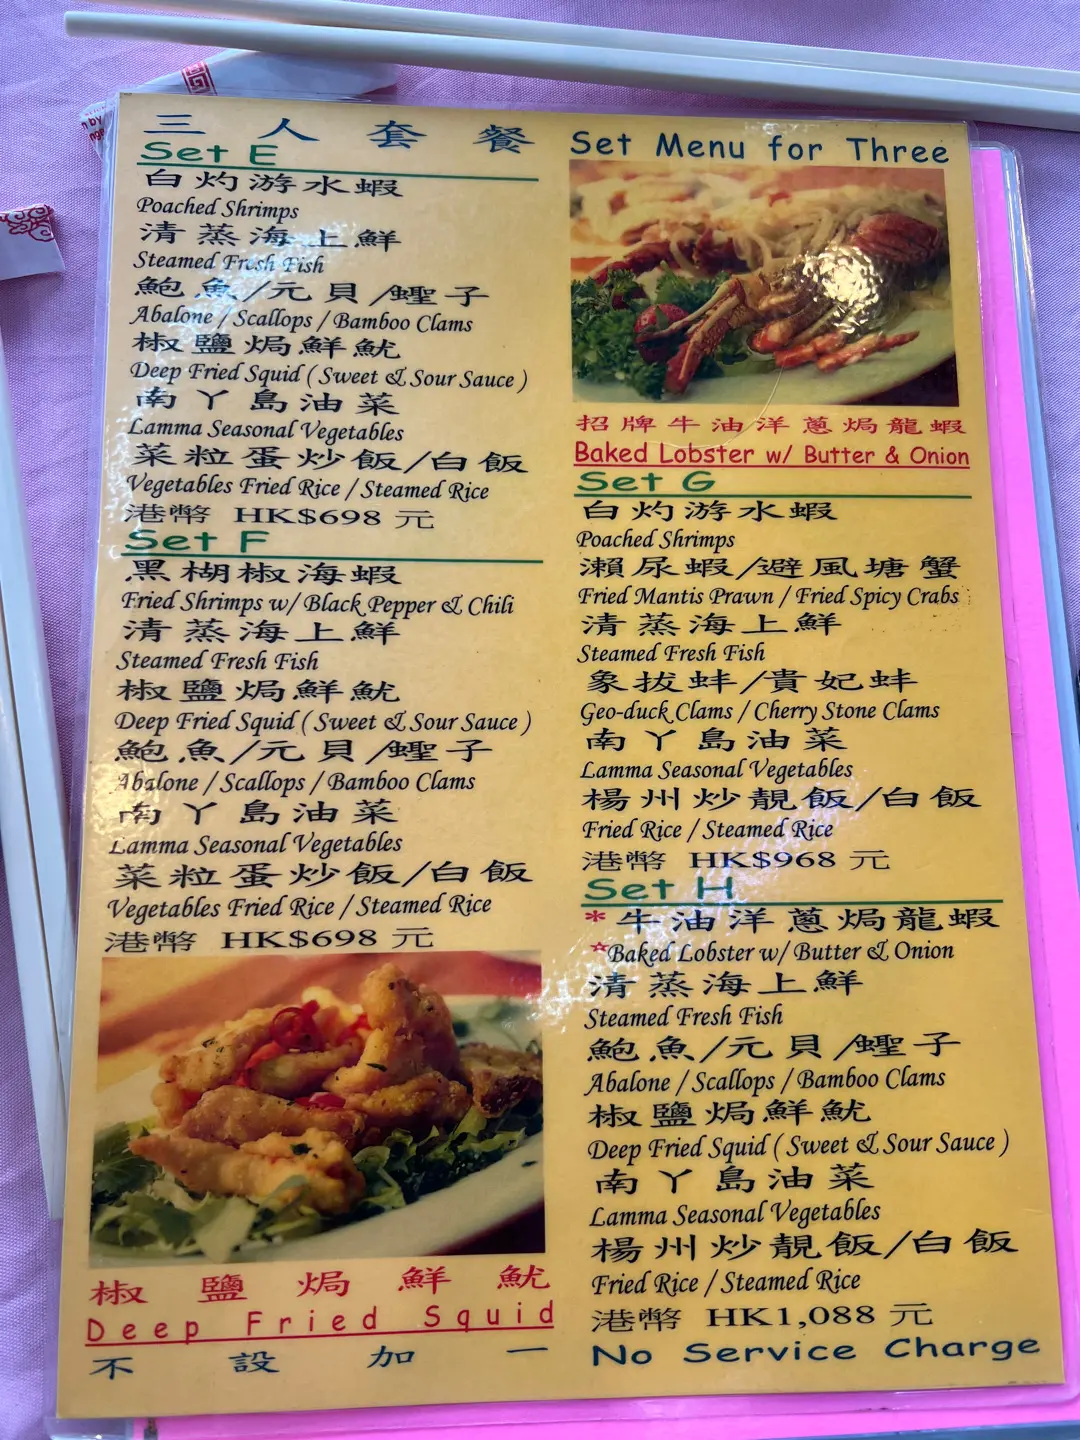 三人套餐
Set E
白灼游水蝦
Poached Shrimps
清蒸海上鮮
Steamed Fresh Fish
鮑魚/元貝/蟶子
Abalone / Scallops / Bamboo Clams
椒鹽焗鮮魷
Deep Fried Squid ( Sweet & Sour Sauce )
南丫島油菜
Lamma Seasonal Vegetables
菜粒蛋炒飯/白飯
Vegetables Fried Rice / Steamed Rice
港幣 HK$698 元
Set F
黑椒海蝦
Fried Shrimps w/ Black Pepper & Chili
清蒸海上鮮
Steamed Fresh Fish
椒鹽焗鮮魷
Deep Fried Squid ( Sweet & Sour Sauce )
鮑魚/元貝/蟶子
Abalone / Scallops / Bamboo Clams
南丫島油菜
Lamma Seasonal Vegetables
菜粒蛋炒飯/白飯
Vegetables Fried Rice / Steamed Rice
港幣 HK$698 元
椒鹽焗鮮魷
Deep Fried Squid
不設加一
Set Menu for Three
招牌牛油洋蔥焗龍蝦
Baked Lobster w/ Butter & Onion
Set G
白灼游水蝦
Poached Shrimps
瀨尿蝦/避風塘蟹
Fried Mantis Prawn / Fried Spicy Crabs
清蒸海上鮮
Steamed Fresh Fish
象拔蚌/貴妃蚌
Geo-duck Clams / Cherry Stone Clams
南丫島油菜
Lamma Seasonal Vegetables
楊州炒靚飯/白飯
Fried Rice / Steamed Rice
港幣 HK$968 元
Set H
*牛油洋蔥焗龍蝦
*Baked Lobster w/ Butter & Onion
清蒸海上鮮
Steamed Fresh Fish
鮑魚/元貝/蟶子
Abalone / Scallops / Bamboo Clams
椒鹽焗鮮魷
Deep Fried Squid ( Sweet & Sour Sauce )
南丫島油菜
Lamma Seasonal Vegetables
楊州炒靚飯/白飯
Fried Rice / Steamed Rice
港幣 HK1,088 元
No Service Charge